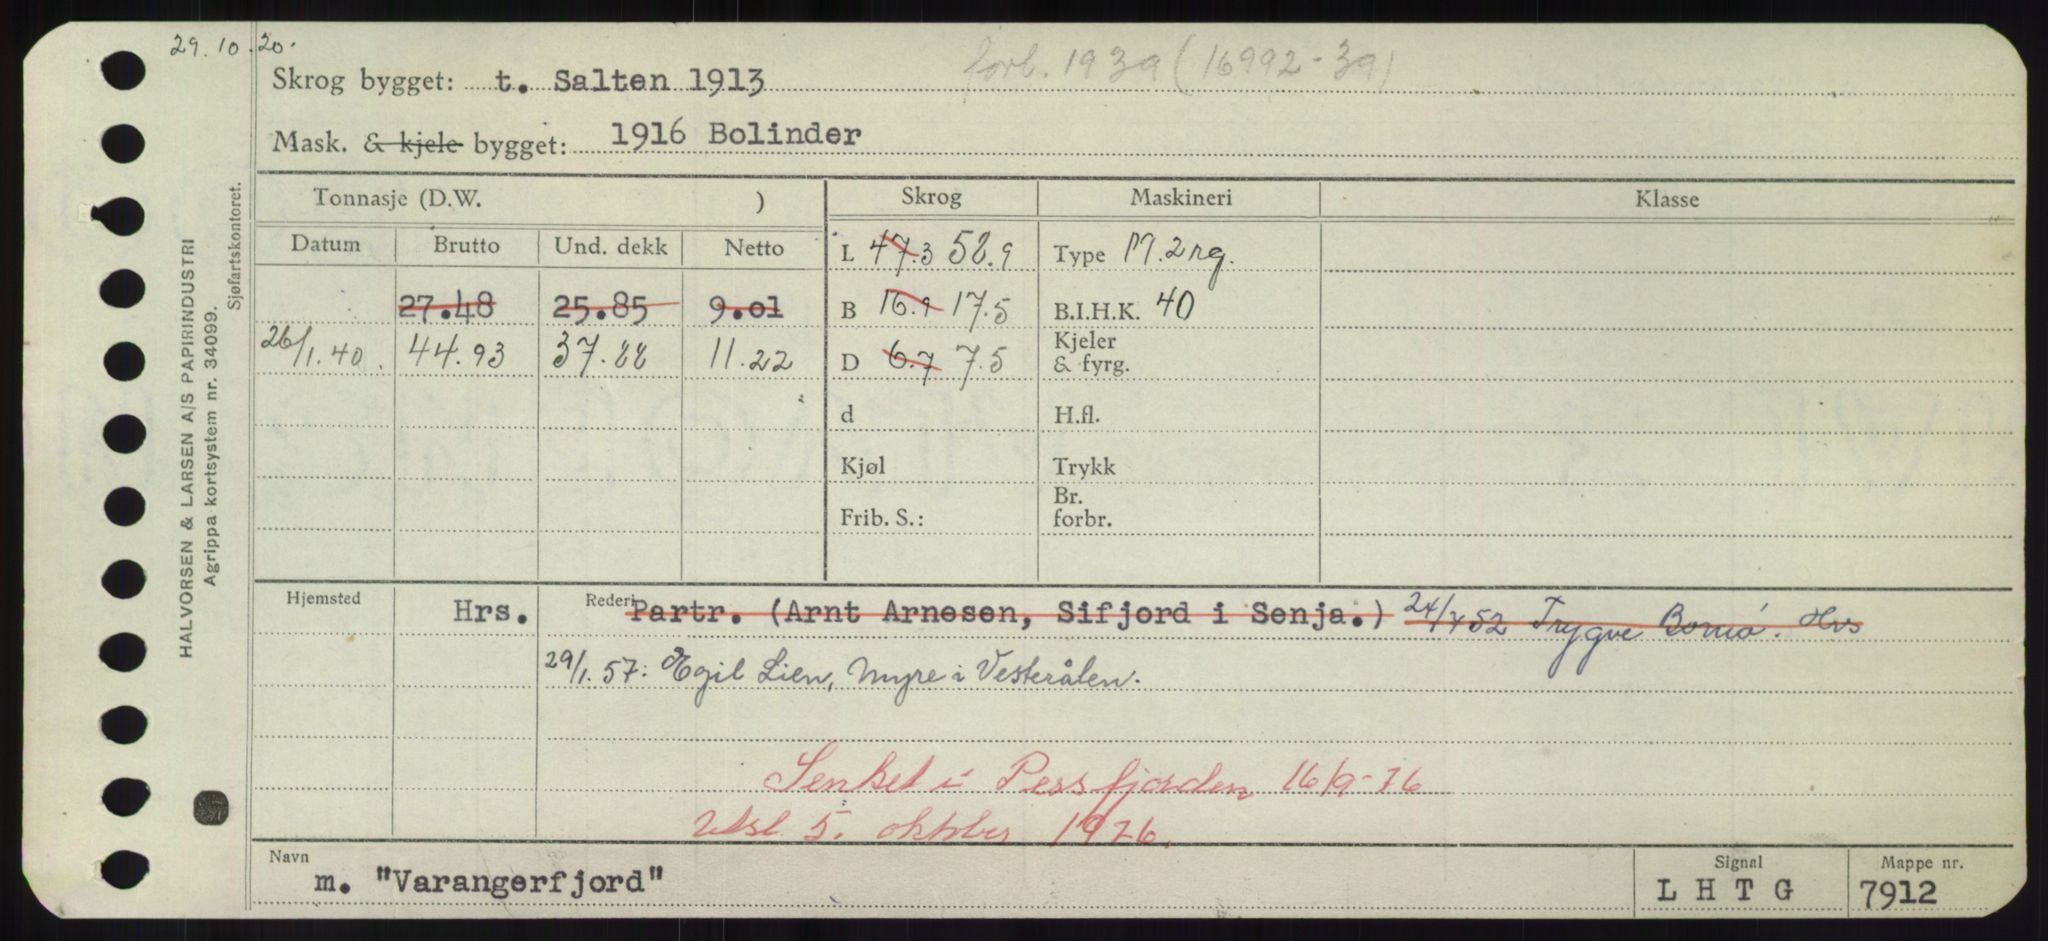 29.10.20.
forl. 1939 (16992-39)
Skrog bygget: t. Salten 1913
Mask. & kjele bygget: 1916 Bolinder
HALVORSEN & LARSEN A/S PAPIRINDUSTRI
Agrippa kortsystem nr. 34099.
Sjøfartskontoret.
Tonnasje (D.W. ) Skrog Maskineri Klasse
Datum Brutto Und. dekk Netto L 47.3 52.9 Type M. 2 rg.
27.48 25.85 9.01 B 16.9 17.5 B.I.H.K. 40
26/1.40. 44.93 37.88 11.22 D 6.7 7.5 Kjeler & fyrg.
d H.fl.
Kjøl Trykk
Frib. S.: Br. forbr.
Hjemsted Hrs. Rederi Partr. (Arnt Arnesen, Sifjord i Senja.) 24/7 52 Trygve Bornø. Hvs
29/1. 57: Egil Lien, Myre i Vesterålen.
Senket i Pessfjorden 16/9-76
Utsl 5. oktober 1976.
Navn m. "Varangerfjord" Signal L H T G Mappe nr. 7912